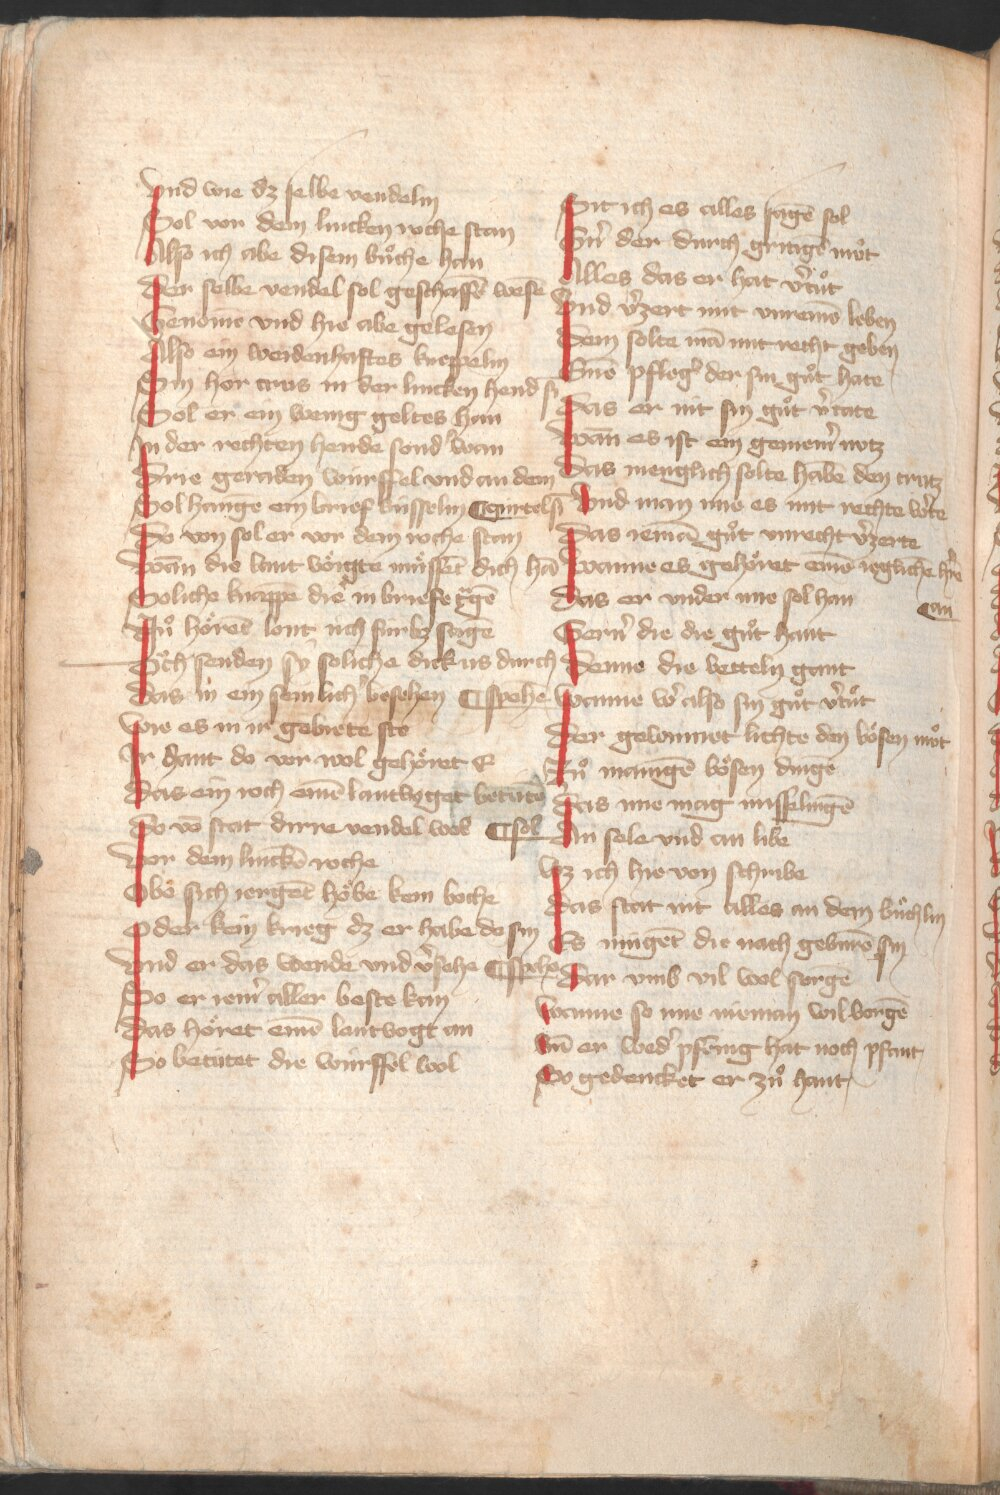 Vnd wie dz selbe vendelin
Sol vor dem lincken roche stan
Also ich abe disem bůche han
Der selbe vendel sol geschaffē wesē
Genomē vnd hie abe gelesen
Also ein werdenhaftes kneppelin
Sin hor crus in der lincken hend sī
Sol er ein wenig geltes han
In der rechten hende sond' wan
Drie geraden würffel vnd an dem
Sol hangē ein brief büsselin ¶ gürtelsī
Do von sol er vor dem roche stan
Wan die lant vöigte müssēt dich hā
Soliche knappē die in briefe tragē
Nů hörēt lont üch fürbz sagē
Och senden sy soliche dick us durch
Das in ein semlich' besehen ¶ spehē
Wie es in ir gebiete ste
Ir hant do vor wol gehöret E
Das ein roch einē lantvoget betutē
Do vō stat dirre vendel wol ¶ sol
Vor dem linckē roche
Obe sich iergēt höbe kein boche
Oder kein krieg dz er habe do sin
Vnd er das wende vnd v'sehe ¶ spehe
So er iem' aller beste kan
Das höret einē lantvogt an
So betütet die würffel wol
Sit ich es alles sagē sol
Ein' der durch gitigē můt
Alles das er hat v'tůt
Vnd v'zert mit vnreinē leben
Dem solte mā mit recht geben
Einē pfleg' der sin gůt hate
Das er nit sin gůt v'tate
Wan es ist ein gemein' notz
Das menglich solte habē den trutz
Vnd man nie es mit rechte w'te
Das iemā gůt vnrecht v'zerte
Wanne es gehöret einē iegliche h're
Das er vnder nie sol han ¶ an
Gern' die die gůt hant
Denne die betteln gant
Wanne w' also sin gůt v'tůt
Der gewinnet lichte den bösen můt
Zů manigē bösen dinge
Das nie mag misselingē
An sele vnd an libe
Wz ich hie von schribe
Das stat nit alles an dem büchlin
Es mügēt die nach geburē sin
Dar vmb vil wol sorgē
Wanne so nie nieman wil borgē
Vn̄ er wed' pfēnig hat noch pfant
So gedencket er zů hant